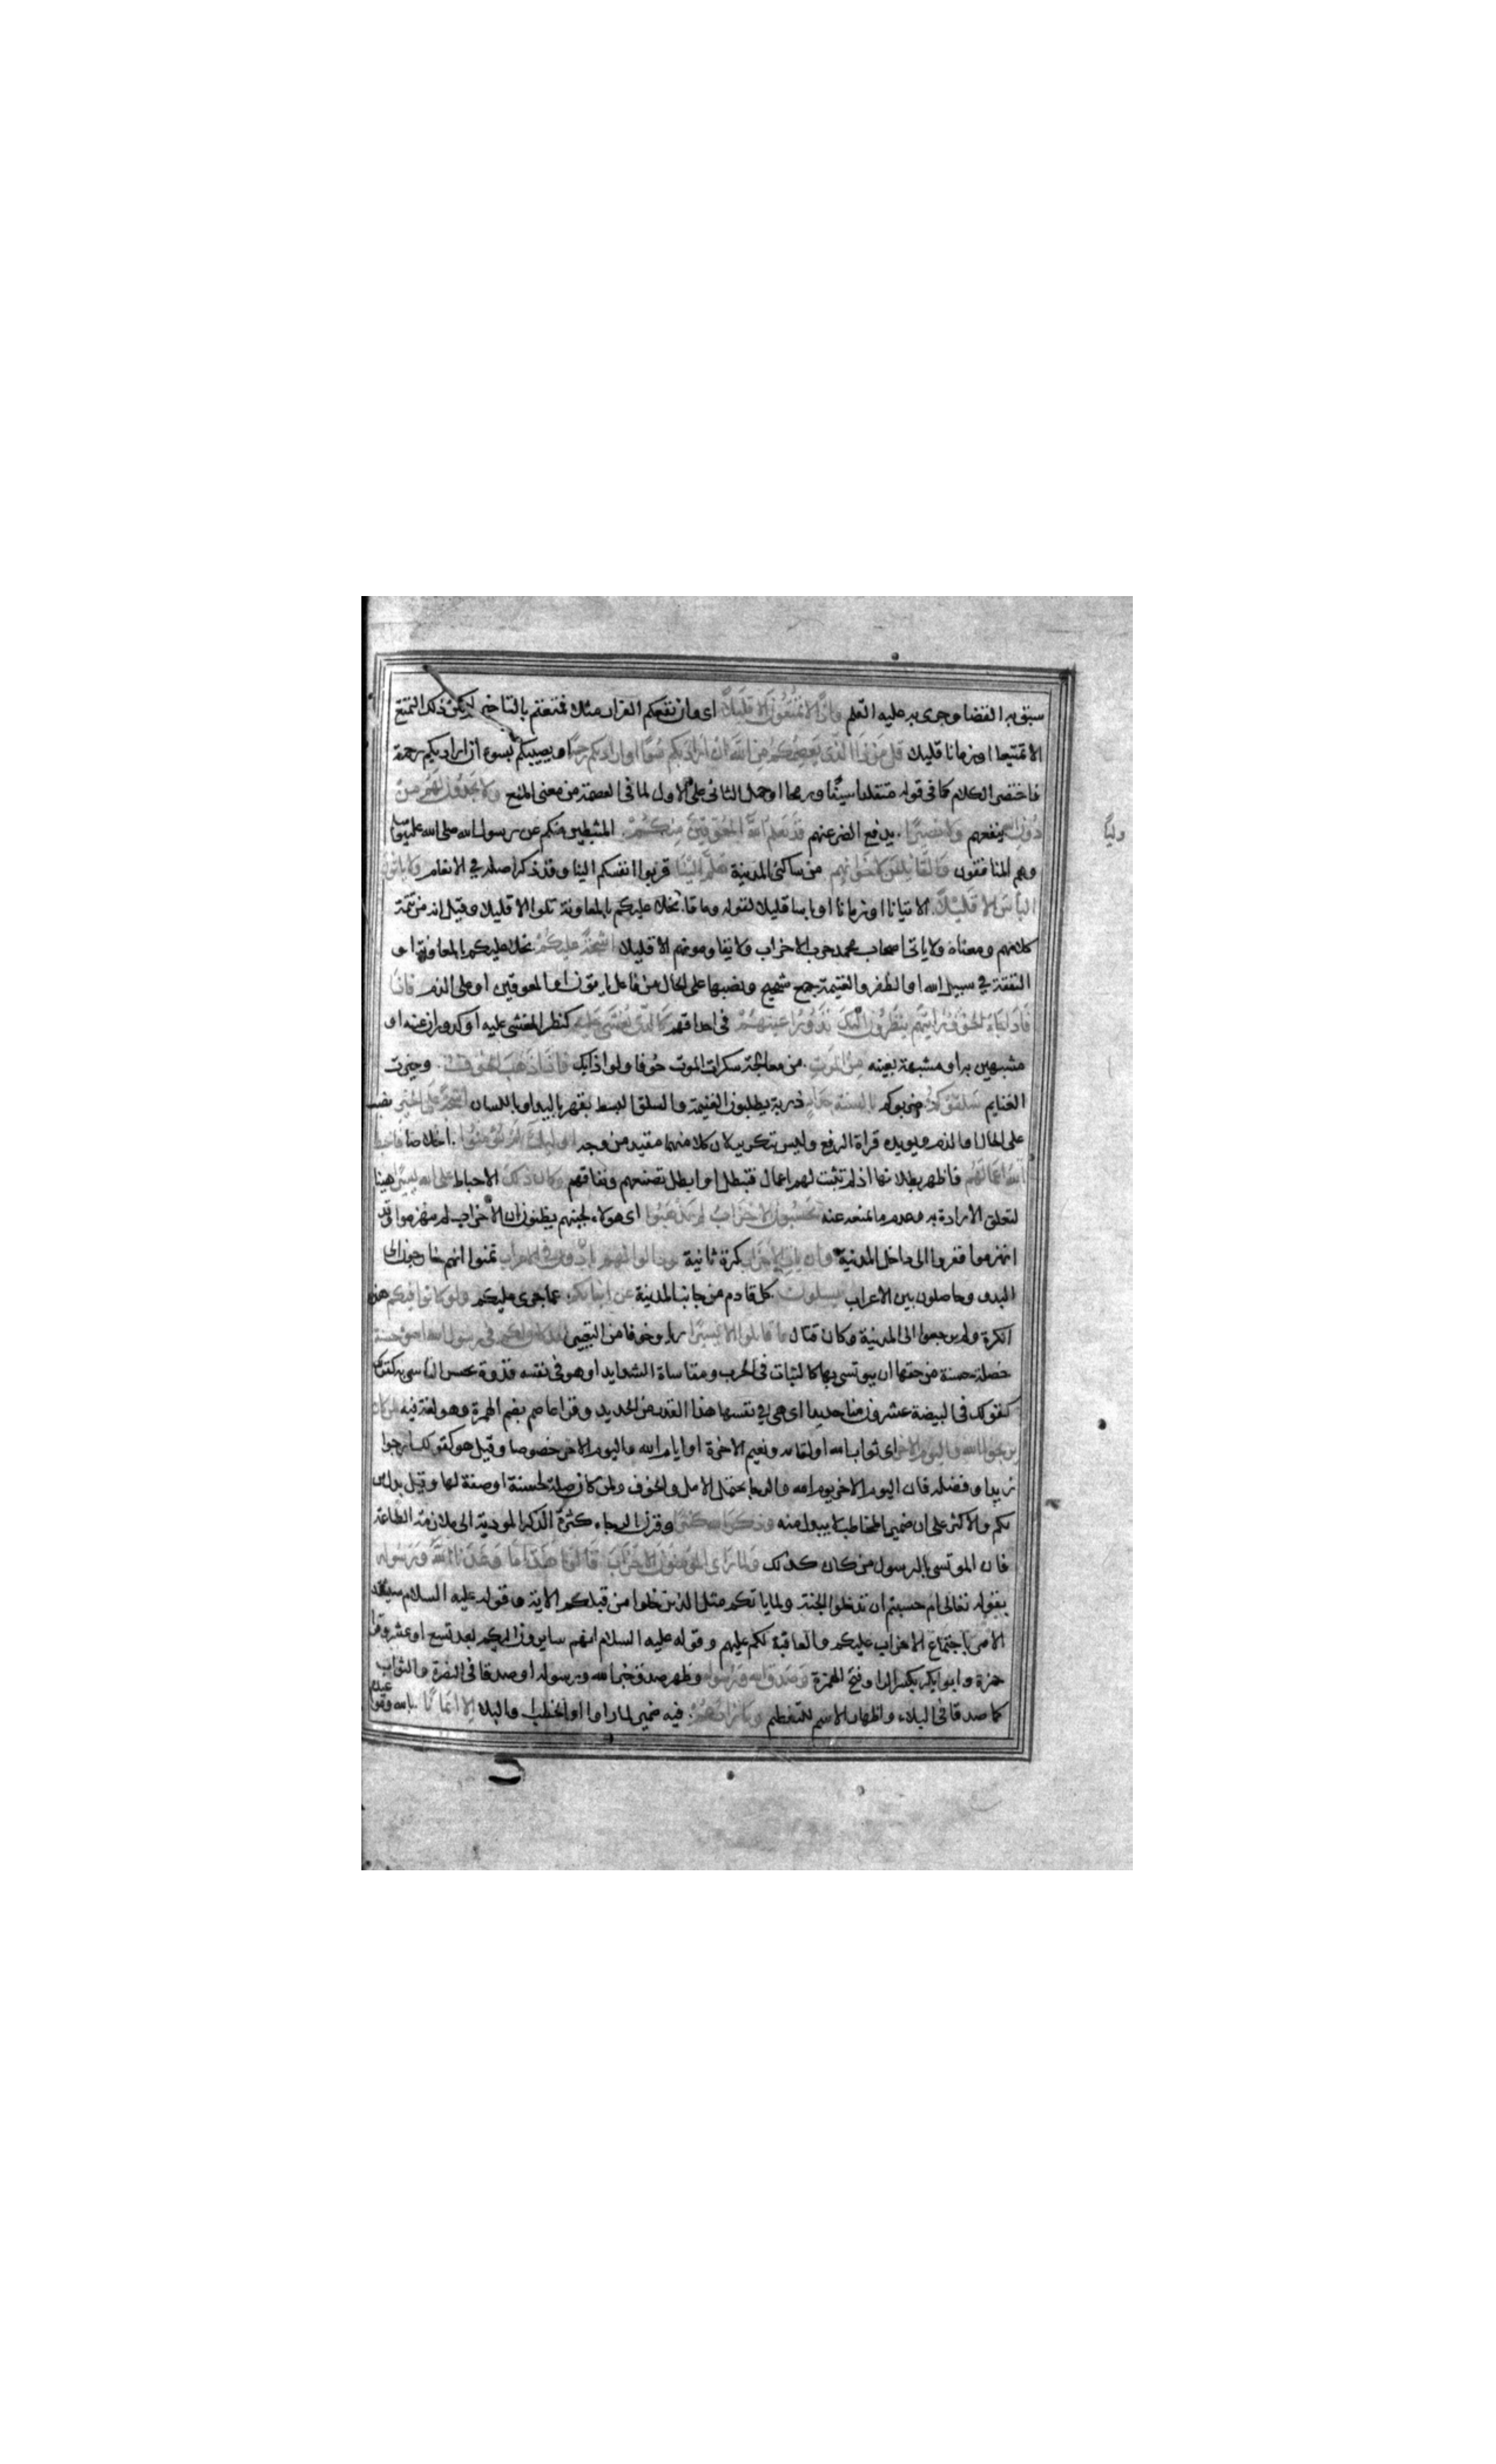 سبق به القضا وجرى به عليه القلم وَاِذًا لَا تُمَتَّعُونَ اِلَّا قَلِيلًا اى وان نفعكم الفرار مثلا فمتعتم بالتاخير لم يكن ذلك التمتع
الا تمتيعا او زمانا قليلا قُلْ مَنْ ذَا الَّذِى يَعْصِمُكُمْ مِنَ اللَّهِ اِنْ اَرَادَ بِكُمْ سُوءًا اَوْ اَرَادَ بِكُمْ رَحْمَةً او يصيبكم بسوء ان اراد بكم رحمة
فاختصر الكلام كما فى قوله متقلدا سيفا ورمحا او حمل الثانى على الاول لما فى العصمة من معنى المنع وَلَا يَجِدُونَ لَهُمْ مِنْ
دُونِ اللَّهِ ينفعهم وَلَا نَصِيرًا يدفع الضر عنهم قَدْ يَعْلَمُ اللَّهُ الْمُعَوِّقِينَ مِنْكُمْ المثبطين منكم عن رسول الله صلى الله عليه وسلم
وليًا
وهم المنافقون وَالْقَائِلِينَ لِاِخْوَانِهِمْ من ساكنى المدينة هَلُمَّ اِلَيْنَا قربوا انفسكم الينا وقد ذكر اصله في الانعام وَلَا يَاْتُونَ
الْبَاْسَ اِلَّا قَلِيلًا الا تيانا او زمانا او باسا قليلا لقوله وما قا بخلا عليكم بالمعاونة تلوا الا قليلا وقيل انه من تتمة
كلامهم ومعناه ولا ياتى اصحاب محمد حرب الاحزاب ولا يقاومونهم الا قليلا اَشِحَّةً عَلَيْكُمْ بخلا عليكم بالمعاونة او
النفقة في سبيل الله او الظفر والغنيمة جمع شحيح ونصبها على الحال من فاعل ياتون او المعوقين او على الذم فَاِذَا
فَاِذَا جَاءَ الْخَوْفُ رَاَيْتَهُمْ يَنْظُرُونَ اِلَيْكَ تَدُورُ اَعْيُنُهُمْ فى احداقهم كَالَّذِى يُغْشَى عَلَيْهِ كنظر المغشى عليه او كدوران عينه او
مشبهين به او مشبهة بعينه مِنَ الْمَوْتِ من معالجة سكرات الموت خوفا ولواذا بك فَاِذَا ذَهَبَ الْخَوْفُ وحيزت
الغنايم سَلَقُوكُمْ ضربوكم بِاَلْسِنَةٍ حِدَادٍ ذربة يطلبون الغنيمة والسلق البسط بقهر باليد او باللسان اَشِحَّةً عَلَى الْخَيْرِ نصب
على الحال او الذم ويويده قراة الرفع وليس بتكرير لان كلا منهما مقيد من وجه اُولٰئِكَ لَمْ يُؤْمِنُوا اخلاصا فَاَحْبَطَ
اللَّهُ اَعْمَالَهُمْ فاظهر بطلانها اذ لم تثبت لهم اعمال فتبطل او ابطل تصنعهم ونفاقهم وَكَانَ ذٰلِكَ الاحباط عَلَى اللَّهِ يَسِيرًا هينا
لتعلق الارادة به وعدم ما يمنعه عنه يَحْسَبُونَ الْاَحْزَابَ لَمْ يَذْهَبُوا اى هولاء لجبنهم يظنون ان الاحزاب لم ينهزموا وقد
انهزموا ففروا الى داخل المدينة وَاِنْ يَاْتِ الْاَحْزَابُ كرة ثانية يَوَدُّوا لَوْ اَنَّهُمْ بَادُونَ فِى الْاَعْرَابِ تمنوا انهم خارجون الى
البدو وحاصلون بين الاعراب يَسْئَلُونَ كل قادم من جانب المدينة عَنْ اَنْبَائِكُمْ عما جرى عليكم وَلَوْ كَانُوا فِيكُمْ هذه
الكرة ولم يرجعوا الى المدينة وكان قتال مَا قَاتَلُوا اِلَّا قَلِيلًا رياء وخوفا من التعيير لَقَدْ كَانَ لَكُمْ فِى رَسُولِ اللَّهِ اُسْوَةٌ حَسَنَةٌ
خصلة حسنة من حقها ان يوتسى بها كالثبات فى الحرب ومقاساة الشدايد او هو فى نفسه قدوة يحسن التاسى به كقولك
كقولك فى البيضة عشرون منا حديدا اى هى في نفسها هذا القدر من الحديد وقرا عاصم بضم الهمزة وهو لغة فيه لِمَنْ كَانَ
يَرْجُوا اللَّهَ وَالْيَوْمَ الْآخِرَ اى ثواب الله او لقاءه ونعيم الاخرة او ايام الله واليوم الاخر خصوصا وقيل هو كقولك ارجوا
زيدا وفضله فان اليوم الاخر يوم الله والرجا يحتمل الامل والخوف ولمن كان صلة لحسنة او صفة لها وقيل بدل من
لكم والاكثر على ان ضمير المخاطب لا يبدل منه وَذَكَرَ اللَّهَ كَثِيرًا وقرن الرجاء كثرة الذكر المودية الى ملازمة الطاعة
فان الموتسى بالرسول من كان كذلك وَلَمَّا رَاَى الْمُؤْمِنُونَ الْاَحْزَابَ قَالُوا هٰذَا مَا وَعَدَنَا اللَّهُ وَرَسُولُهُ
بقوله تعالى ام حسبتم ان تدخلوا الجنة ولما ياتكم مثل الذين خلوا من قبلكم الاية وقوله عليه السلام سيشتد
الامر باجتماع الاحزاب عليكم والعاقبة لكم عليهم وقوله عليه السلام انهم سايرون اليكم بعد تسع او عشر وقرا
حمزة وابو بكر بكسر الرا وفتح الهمزة وَصَدَقَ اللَّهُ وَرَسُولُهُ وظهر صدق خبر الله ورسوله او صدقا فى النصرة والثواب
كما صدقا فى البلاء واظهار الاسم للتعظيم وَمَا زَادَهُمْ فيه ضمير لما راوا او الخطب والبلاء اِلَّا اِيمَانًا بالله وقوا